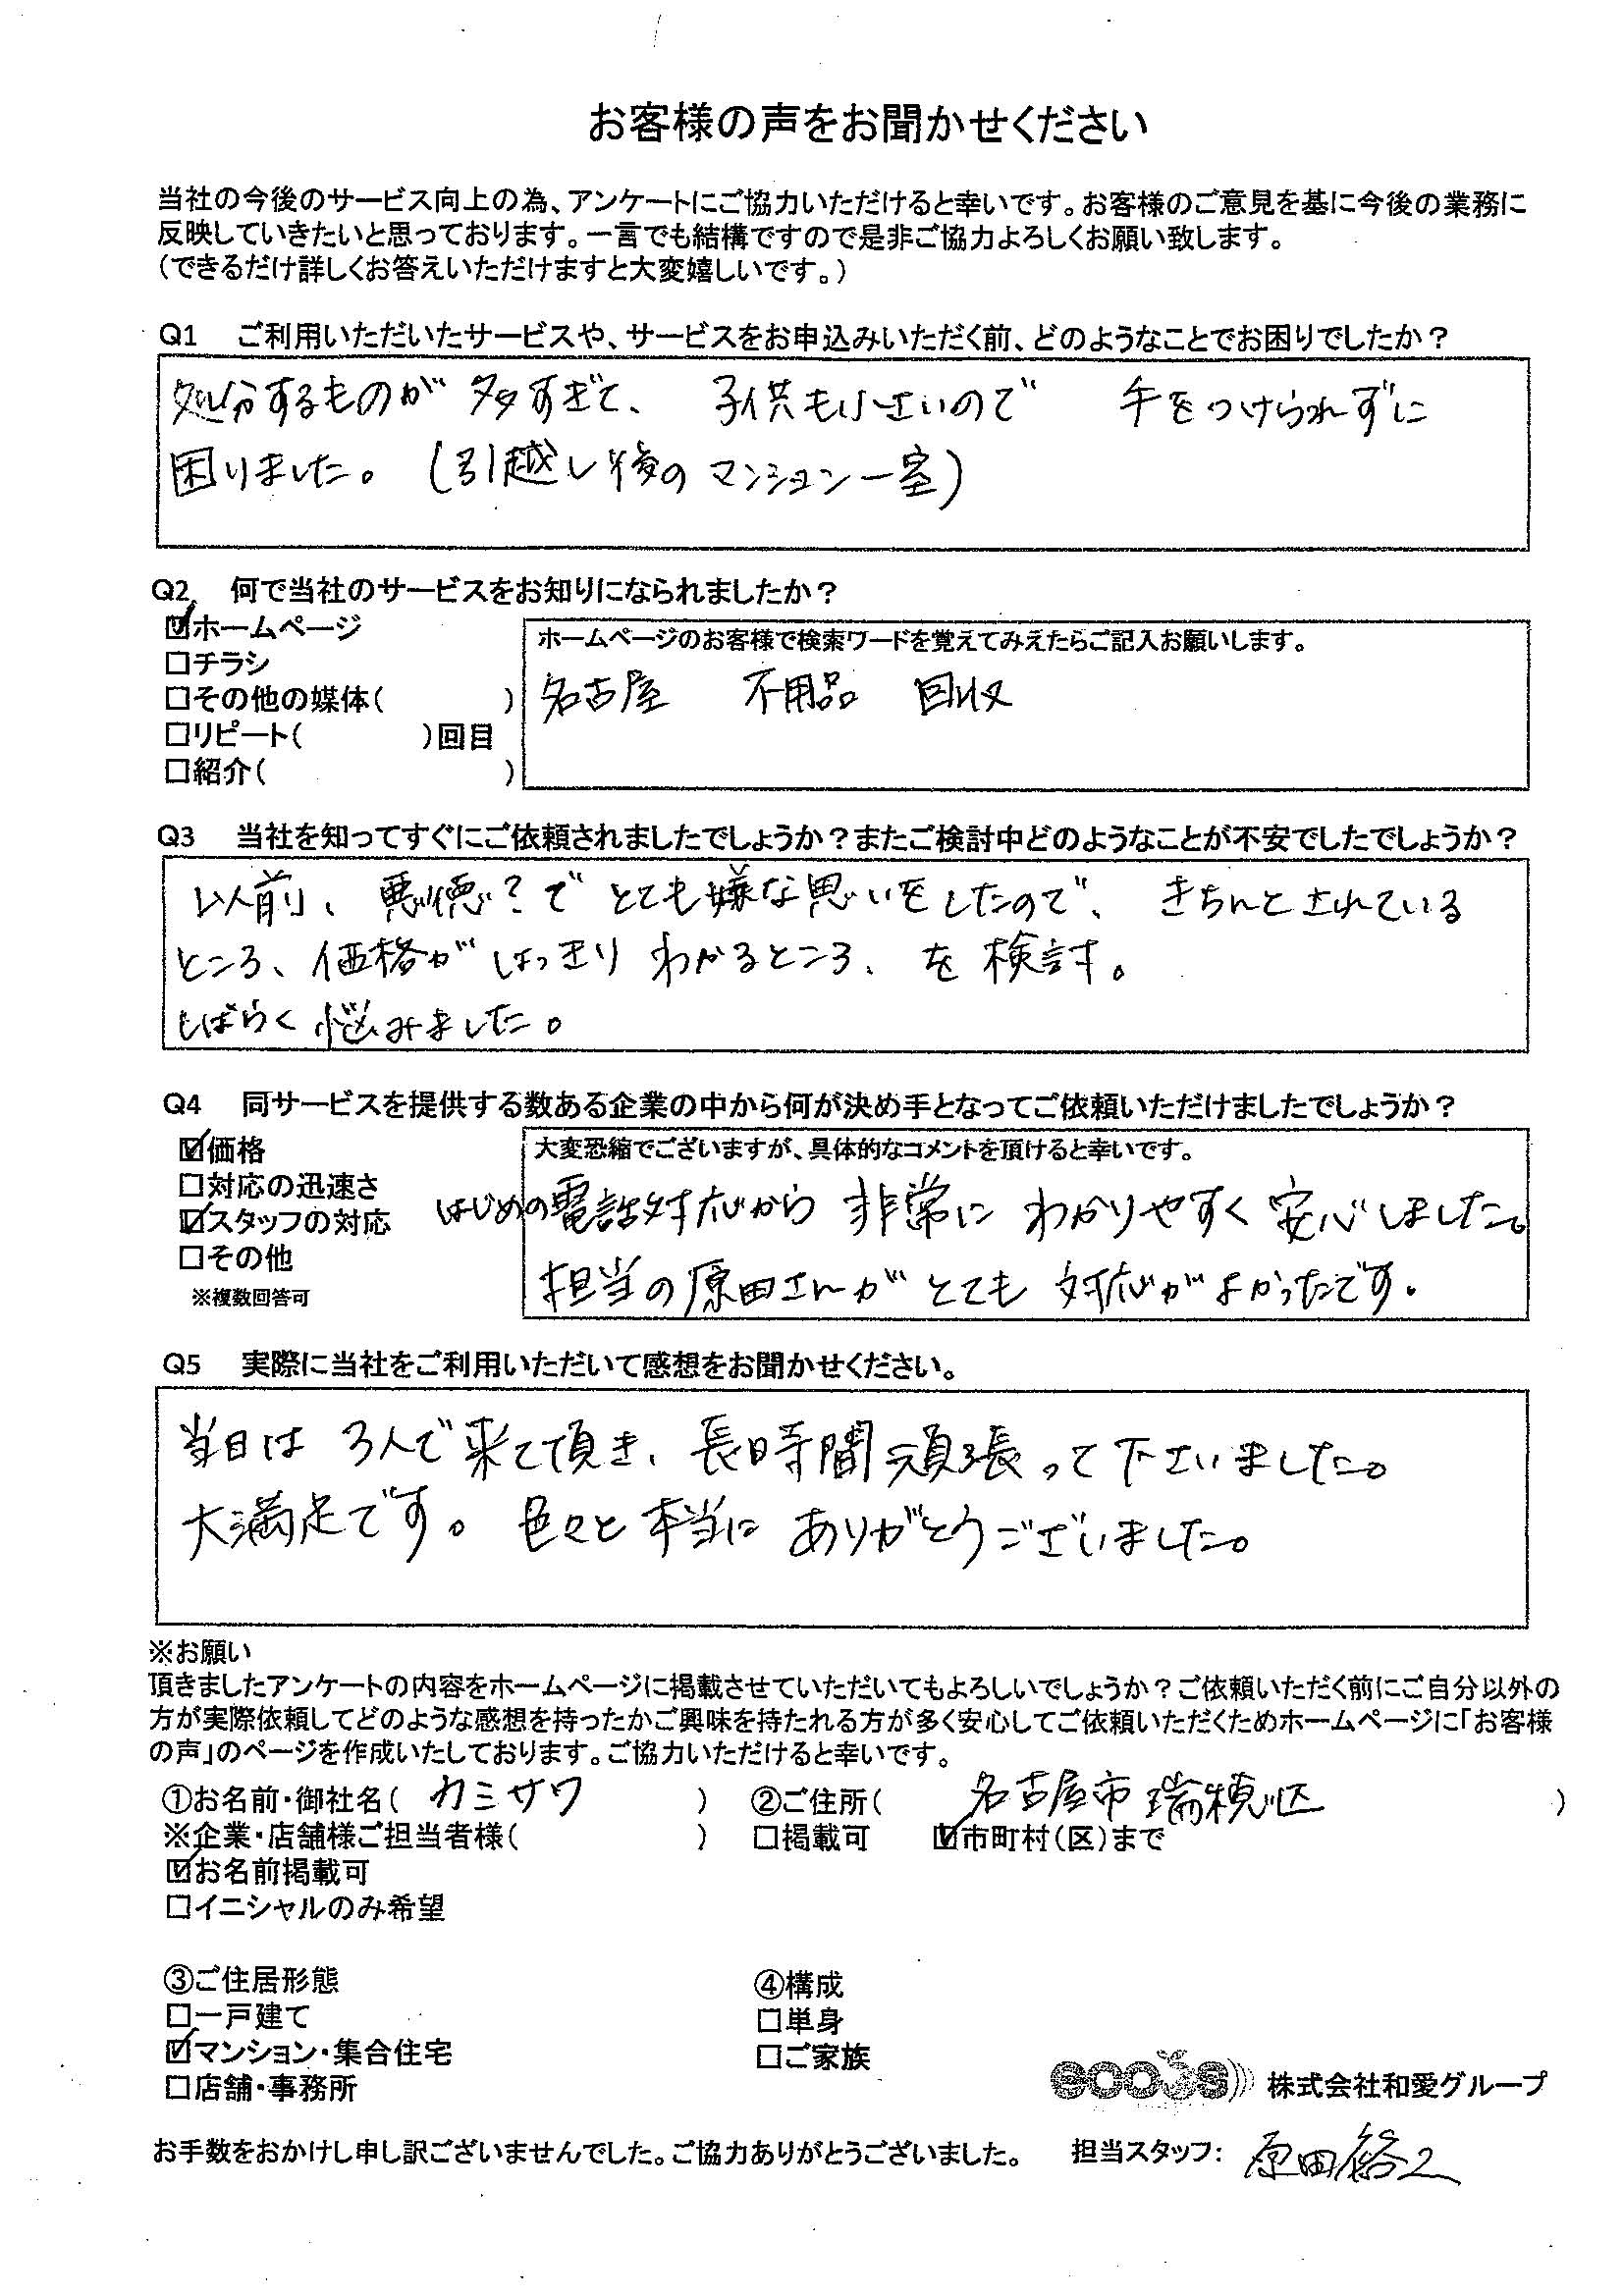 お客様の声をお聞かせください
当社の今後のサービス向上の為、アンケートにご協力いただけると幸いです。お客様のご意見を基に今後の業務に
反映していきたいと思っております。一言でも結構ですので是非ご協力よろしくお願い致します。
（できるだけ詳しくお答えいただけますと大変嬉しいです。）
Q1 ご利用いただいたサービスや、サービスをお申込みいただく前、どのようなことでお困りでしたか？
処分するものが多すぎて、子供も小さいので 手をつけられずに
困りました。（引越し後のマンション一室）
Q2 何で当社のサービスをお知りになられましたか？
☑ホームページ
□チラシ
□その他の媒体（ ）
□リピート（ ）回目
□紹介（ ）
ホームページのお客様で検索ワードを覚えてみえたらご記入お願いします。
名古屋 不用品 回収
Q3 当社を知ってすぐにご依頼されましたでしょうか？またご検討中どのようなことが不安でしたでしょうか？
以前、悪徳？でとても嫌な思いをしたので、きちんとされている
ところ、価格がはっきりわかるところ、を検討。
しばらく悩みました。
Q4 同サービスを提供する数ある企業の中から何が決め手となってご依頼いただけましたでしょうか？
☑価格
□対応の迅速さ
☑スタッフの対応
□その他
※複数回答可
大変恐縮でございますが、具体的なコメントを頂けると幸いです。
はじめの電話対応から非常にわかりやすく安心しました。
担当の原田さんがとても対応がよかったです。
Q5 実際に当社をご利用いただいて感想をお聞かせください。
当日は3人で来て頂き、長時間頑張って下さいました。
大満足です。色々と本当にありがとうございました。
※お願い
頂きましたアンケートの内容をホームページに掲載させていただいてもよろしいでしょうか？ご依頼いただく前にご自分以外の
方が実際依頼してどのような感想を持ったかご興味を持たれる方が多く安心してご依頼いただくためホームページに「お客様
の声」のページを作成いたしております。ご協力いただけると幸いです。
①お名前・御社名（ カミサワ ） ②ご住所（ 名古屋市瑞穂区 ）
※企業・店舗様ご担当者様（ ） □掲載可 ☑市町村（区）まで
☑お名前掲載可
□イニシャルのみ希望
③ご住居形態 ④構成
□一戸建て □単身
☑マンション・集合住宅 □ご家族
□店舗・事務所
株式会社和愛グループ
お手数をおかけし申し訳ございませんでした。ご協力ありがとうございました。 担当スタッフ： 原田